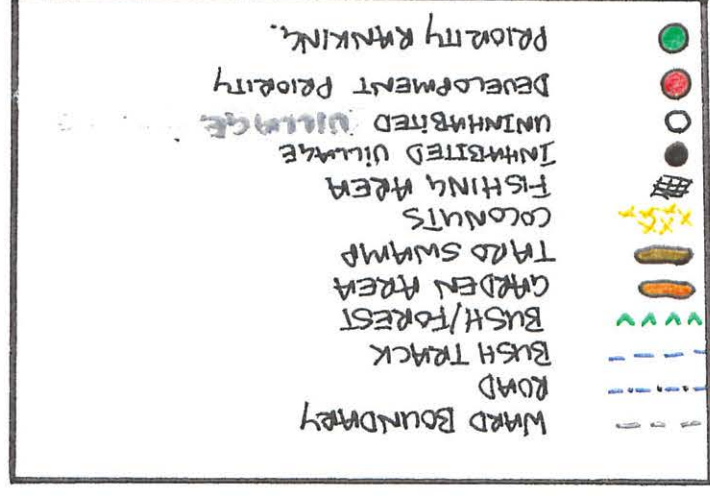 WARD BOUNDARY
ROAD
BUSH TRACK
BUSH/FOREST
GARDEN AREA
TARO SWAMP
COCONUTS
FISHING AREA
INHABITED VILLAGE
UNINHABITED VILLAGE
DEVELOPMENT PRIORITY
PRIORITY RANKING.